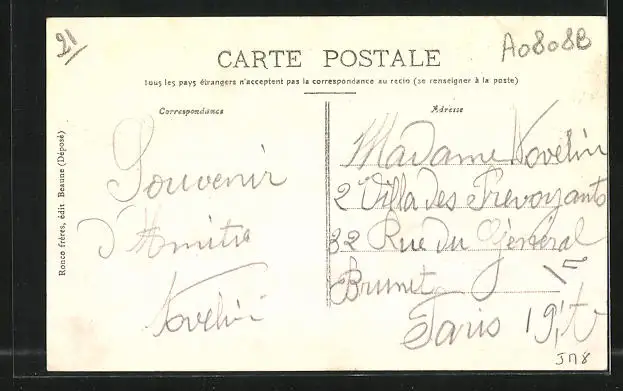 21
A0808B
CARTE POSTALE
Tous les pays étrangers n'acceptent pas la correspondance au recto (se renseigner à la poste)
Correspondance
Souvenir
d'Amitié
Novelin
Adresse
Madame Novelin
2 Villa des Prevoyants
32 Rue du Général
Brunet
Paris 19
Ronco frères, édit Beaune (Déposé)